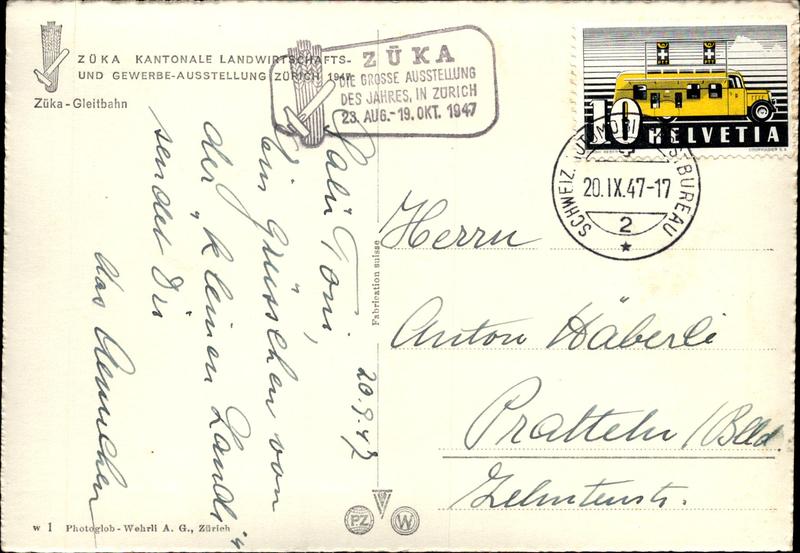 ZÜKA KANTONALE LANDWIRTSCHAFTS-
UND GEWERBE-AUSSTELLUNG ZÜRICH 1947
Züka - Gleitbahn
ZÜKA
DIE GROSSE AUSSTELLUNG
DES JAHRES, IN ZÜRICH
23. AUG.-19. OKT. 1947
10 HELVETIA
COURVOISIER S.A.
SCHWEIZ. AUTOMOBIL-POSTBUREAU
20.IX.47-17
2
20.9.47
Salü Toni,
Ein Grüsschen von
der "kleinen Landi"
sendet Dir
das
Herrn
Anton Häberli
Pratteln/Blld.
Zehntenstr.
Fabrication suisse
PZ W
w 1 Photoglob - Wehrli A. G., Zürich